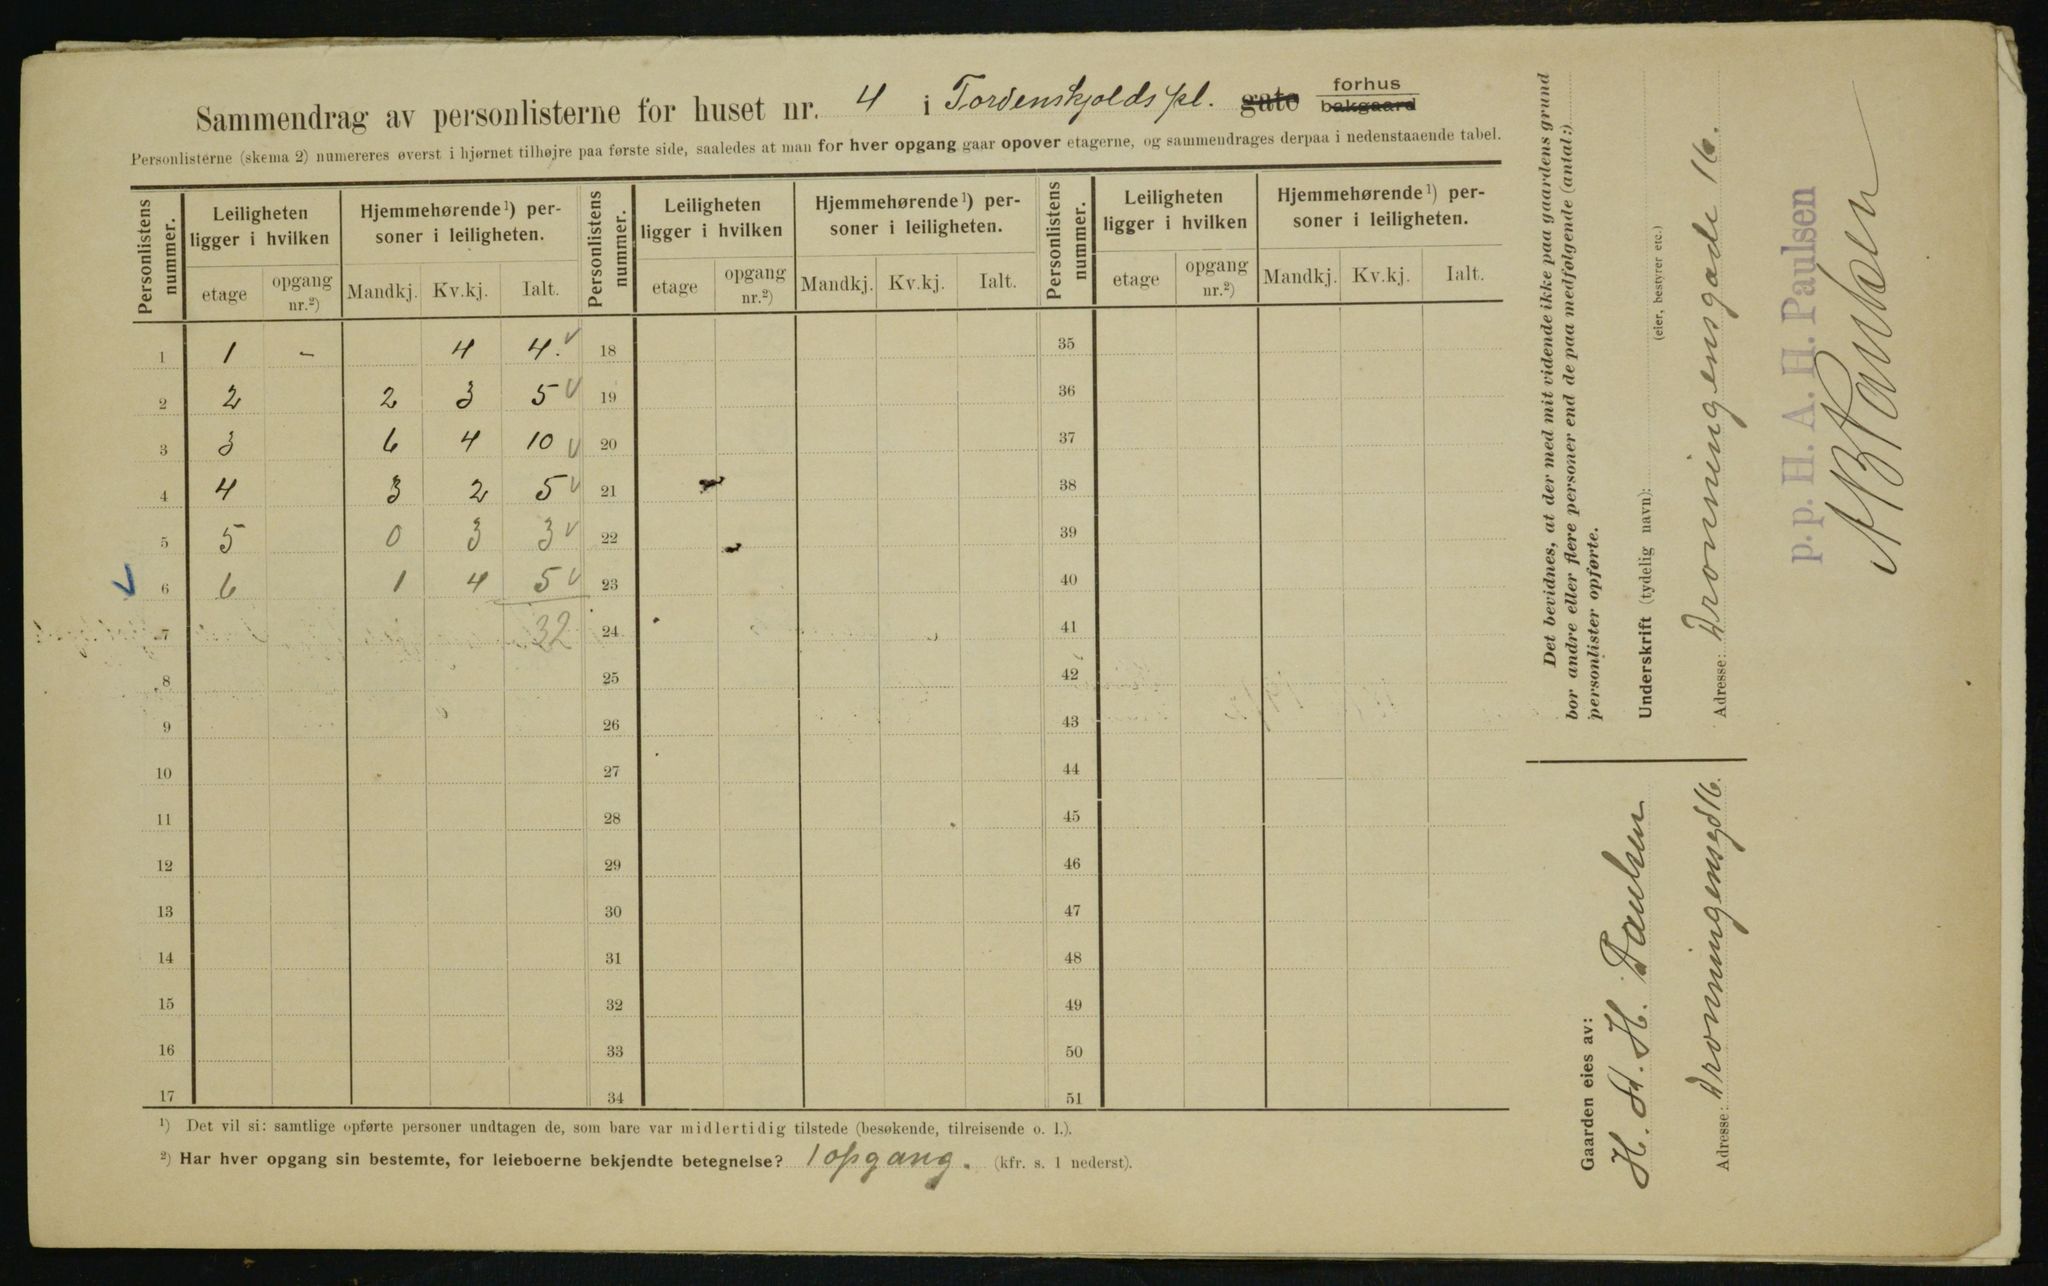 Sammendrag av personlisterne for huset nr. 4 i Tordenskjolds pl. gate forhus
bakgaard
Personlisterne (skema 2) numereres øverst i hjørnet tilhøjre paa første side, saaledes at man for hver opgang gaar opover etagerne, og sammendrages derpaa i nedenstaaende tabel.
Personlistens nummer. Leiligheten ligger i hvilken Hjemmehørende ¹) personer i leiligheten. Personlistens nummer. Leiligheten ligger i hvilken Hjemmehørende ¹) personer i leiligheten. Personlistens nummer. Leiligheten ligger i hvilken Hjemmehørende ¹) personer i leiligheten.
etage opgang nr.²) Mandkj. Kv.kj. Ialt. etage opgang nr.²) Mandkj. Kv.kj. Ialt. etage opgang nr.²) Mandkj. Kv.kj. Ialt.
1 1 - 4 4. 18 35
2 2 2 3 5 19 36
3 3 6 4 10 20 37
4 4 3 2 5 21 38
5 5 0 3 3 22 39
6 6 1 4 5 23 40
7 32 24 41
8 25 42
9 26 43
10 27 44
11 28 45
12 29 46
13 30 47
14 31 48
15 32 49
16 33 50
17 34 51
¹) Det vil si: samtlige opførte personer undtagen de, som bare var midlertidig tilstede (besøkende, tilreisende o. l.).
²) Har hver opgang sin bestemte, for leieboerne bekjendte betegnelse? 1 opgang. (kfr. s. 1 nederst).
Det bevidnes, at der med mit vidende ikke paa gaardens grund
bor andre eller flere personer end de paa medfølgende (antal:)
personlister opførte.
Underskrift (tydelig navn):
(eier, bestyrer etc.)
Adresse: Dronningensgade 16.
p. p. H. A. H. Paulsen
Gaarden eies av:
H. A. H. Paulsen
Adresse: Dronningensgd 16.